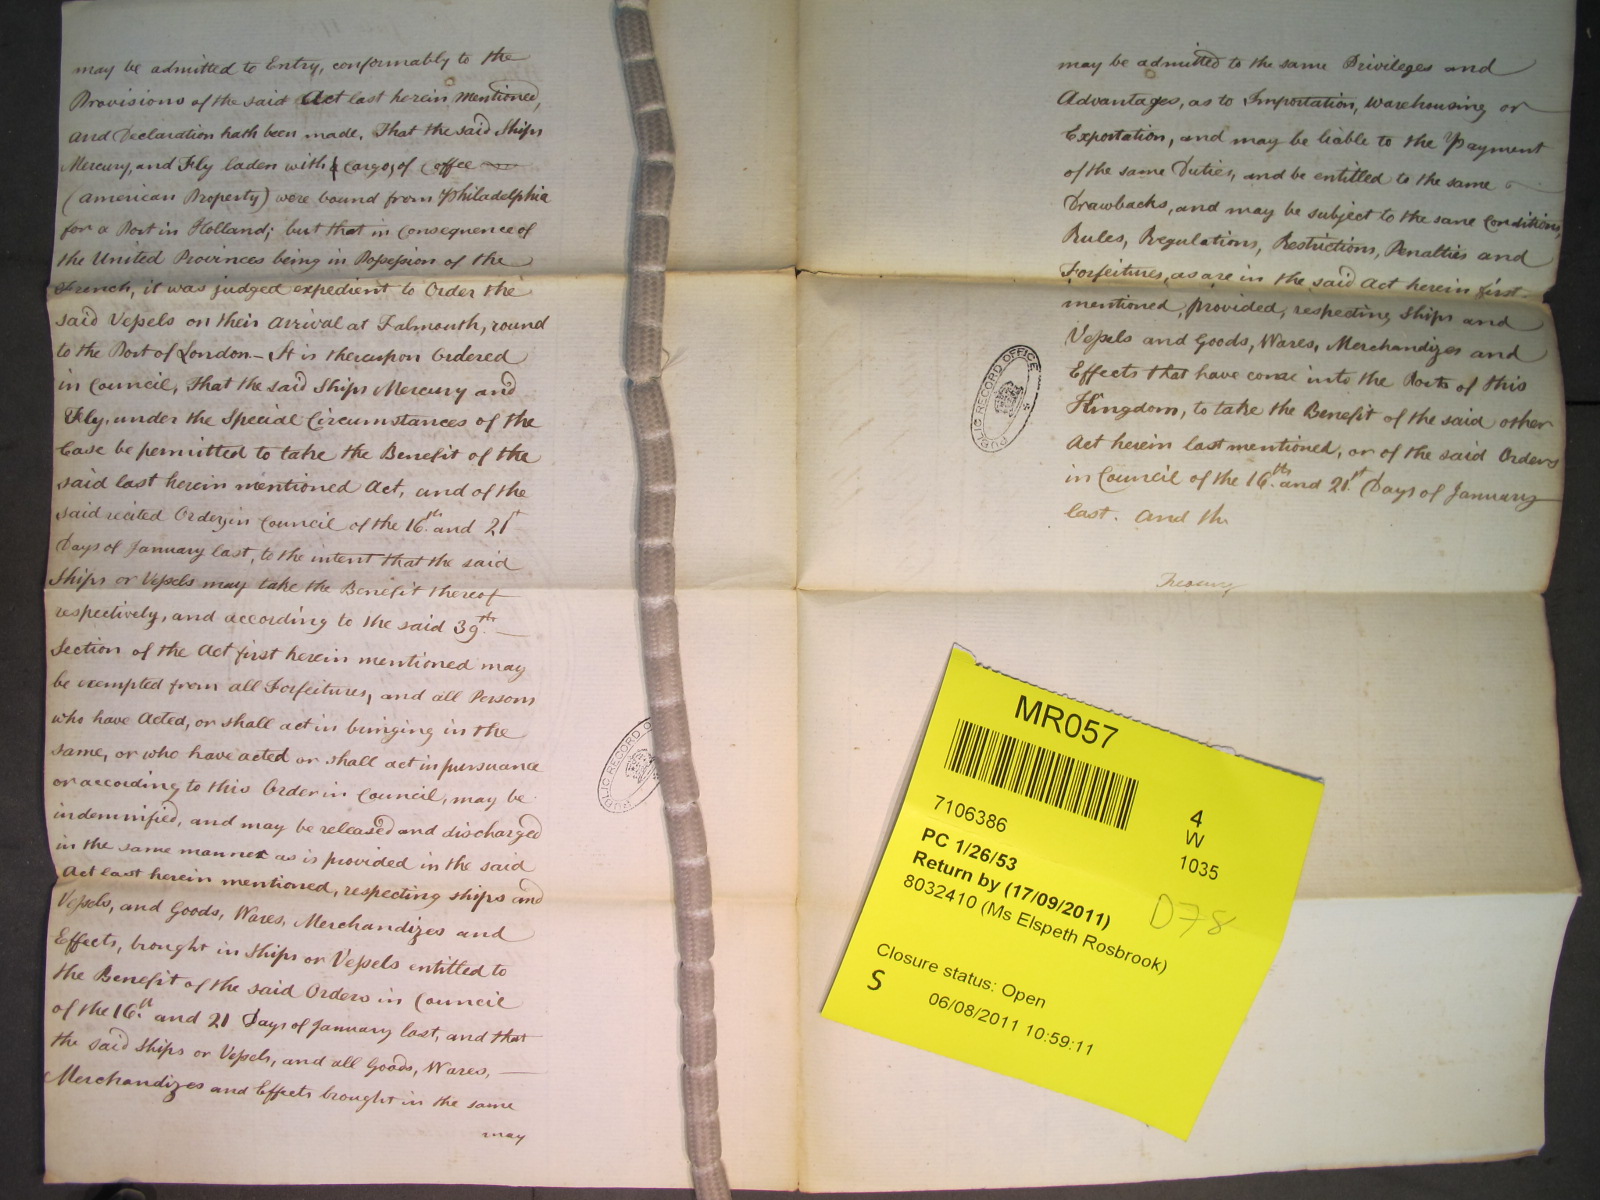 may be admitted to Entry, conformably to the
Provisions of the said Act last herein mentioned,
and Declaration hath been made, That the said Ships
Mercury, and Fly laden with Cargo, of Coffee
(American Property) were bound from Philadelphia
for a Port in Holland; but that in consequence of
the United Provinces being in Possession of the
French, it was judged expedient to Order the
said Vessels on their arrival at Falmouth, round
to the Port of London – It is thereupon Ordered
in Council, That the said Ships Mercury and
Fly, under the Special Circumstances of the
Case be permitted to take the Benefit of the
said last herein mentioned Act, and of the
said recited Orders in Council of the 16th. and 21st
Days of January last, to the intent that the said
Ships or Vessels may take the Benefit thereof
respectively, and according to the said 39th. —
Section of the Act first herein mentioned may
be exempted from all Forfeitures, and all Persons
who have Acted, or shall act in bringing in the
same, or who have acted or shall act in pursuance
or according to this Order in Council, may be
indemnified, and may be released and discharged
in the same manner as is provided in the said
Act last herein mentioned, respecting ships and
Vessels, and Goods, Wares, Merchandizes and
Effects, brought in Ships or Vessels entitled to
the Benefit of the said Orders in Council
of the 16th. and 21 Days of January last, and that
the said Ships or Vessels, and all Goods, Wares, —
Merchandizes and Effects brought in the same
may
may be admitted to the same Privileges and
Advantages, as to Importation, warehousing or
Exportation, and may be liable to the Payment
of the same Duties, and be entitled to the same
Drawbacks, and may be subject to the same Conditions,
Rules, Regulations, Restrictions, Penalties and
Forfeitures, as are in the said Act herein first
mentioned, provided, respecting Ships and
Vessels and Goods, Wares, Merchandizes and
Effects that have come into the Ports of this
Kingdom, to take the Benefit of the said other
Act herein last mentioned, or of the said Orders
in Council of the 16th. and 21st Days of January
last. And the
Treasury
PUBLIC RECORD OFFICE
PUBLIC RECORD O
MR057
4
W
1035
7106386
PC 1/26/53
Return by (17/09/2011)
8032410 (Ms Elspeth Rosbrook)
D78
Closure status: Open
S
06/08/2011 10:59:11